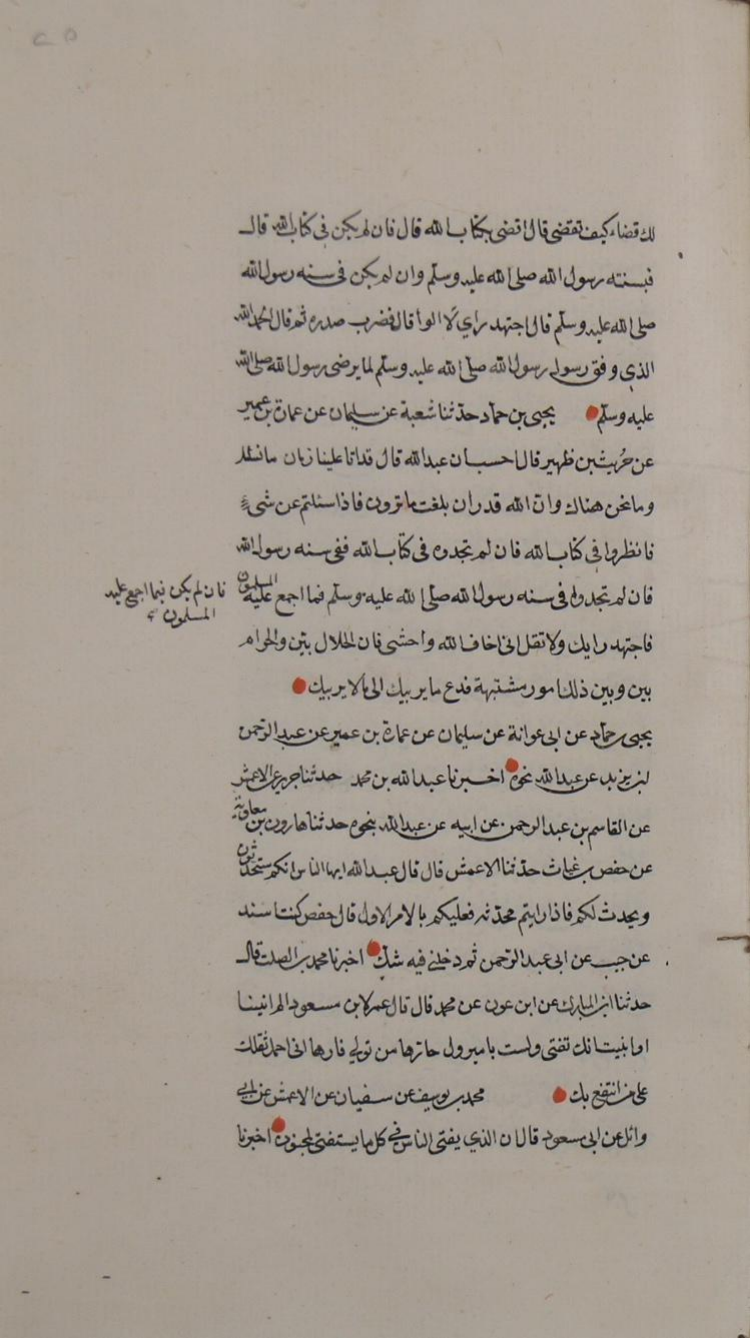 لك قضاء كيف تقضى قال اقضى بكتاب الله قال فان لم يكن فى كتاب الله قال
فبسنته رسول الله صلى الله عليه وسلم وان لم يكن فى سنه رسول الله
صلى الله عليه وسلم قال اجتهد راي لا الوا قال فضرب صدره ثم قال الحمد لله
الذي وفق رسول رسول الله صلى الله عليه وسلم لما يرضى رسول الله صلى الله
عليه وسلم يحيى بن حماد حدثنا شعبة عن سليمان عن عمارة بن عمير
عن حُريث بن ظهير قال احسب ان عبد الله قال قد اتا علينا زمان ما نسئل
وما نحن هناك وان الله قدر ان بلغت ما ترون فاذا سئلتم عن شئ
فانظروا فى كتاب الله فان لم تجدوه فى كتاب الله ففى سنه رسول الله
فان لم تجدوا فى سنه رسول الله صلى الله عليه وسلم فما اجمع عليه المسلمون
فان لم يكن فيما اجمع عليه
المسلمون
فاجتهد رايك ولا تقل انى اخاف الله واخشى فان الحلال بين والحرام
بين وبين ذلك امور مشتبهة فدع ما يريبك الى ما لا يريبك
يحيى بن حماد عن ابى عوانة عن سليمان عن عمارة بن عمير عن عبد الرحمن
بن يزيد عن عبد الله نحوه اخبرنا عبد الله بن محمد حدثنا جرير عن الاعمش
عن القاسم بن عبد الرحمن عن ابيه عن عبد الله بنحوه حدثنا هارون بن معاوية
عن حفص بن غياث حدثنا الاعمش قال قال عبد الله ايها الناس انكم ستحدثون
ويحدث لكم فاذا رايتم محدثه فعليكم بالامر الاول قال حفص كنت اسند
عن حبيب عن ابى عبد الرحمن ثم دخلني فيه شك اخبرنا محمد بن الصلت قال
حدثنا ابن المبارك عن ابن عون عن محمد قال قال عمر لابن مسعود الم انبئنا
او انبئت انك تفتى ولست بامير ول حارها من تولي قارها انى احمد ثقلك
على من انتفع بك محمد بن يوسف عن سفيان عن الاعمش عن ابى
وائل عن ابى مسعود قال ان الذي يفتى الناس فى كل ما يستفتى لمجنون اخبرنا